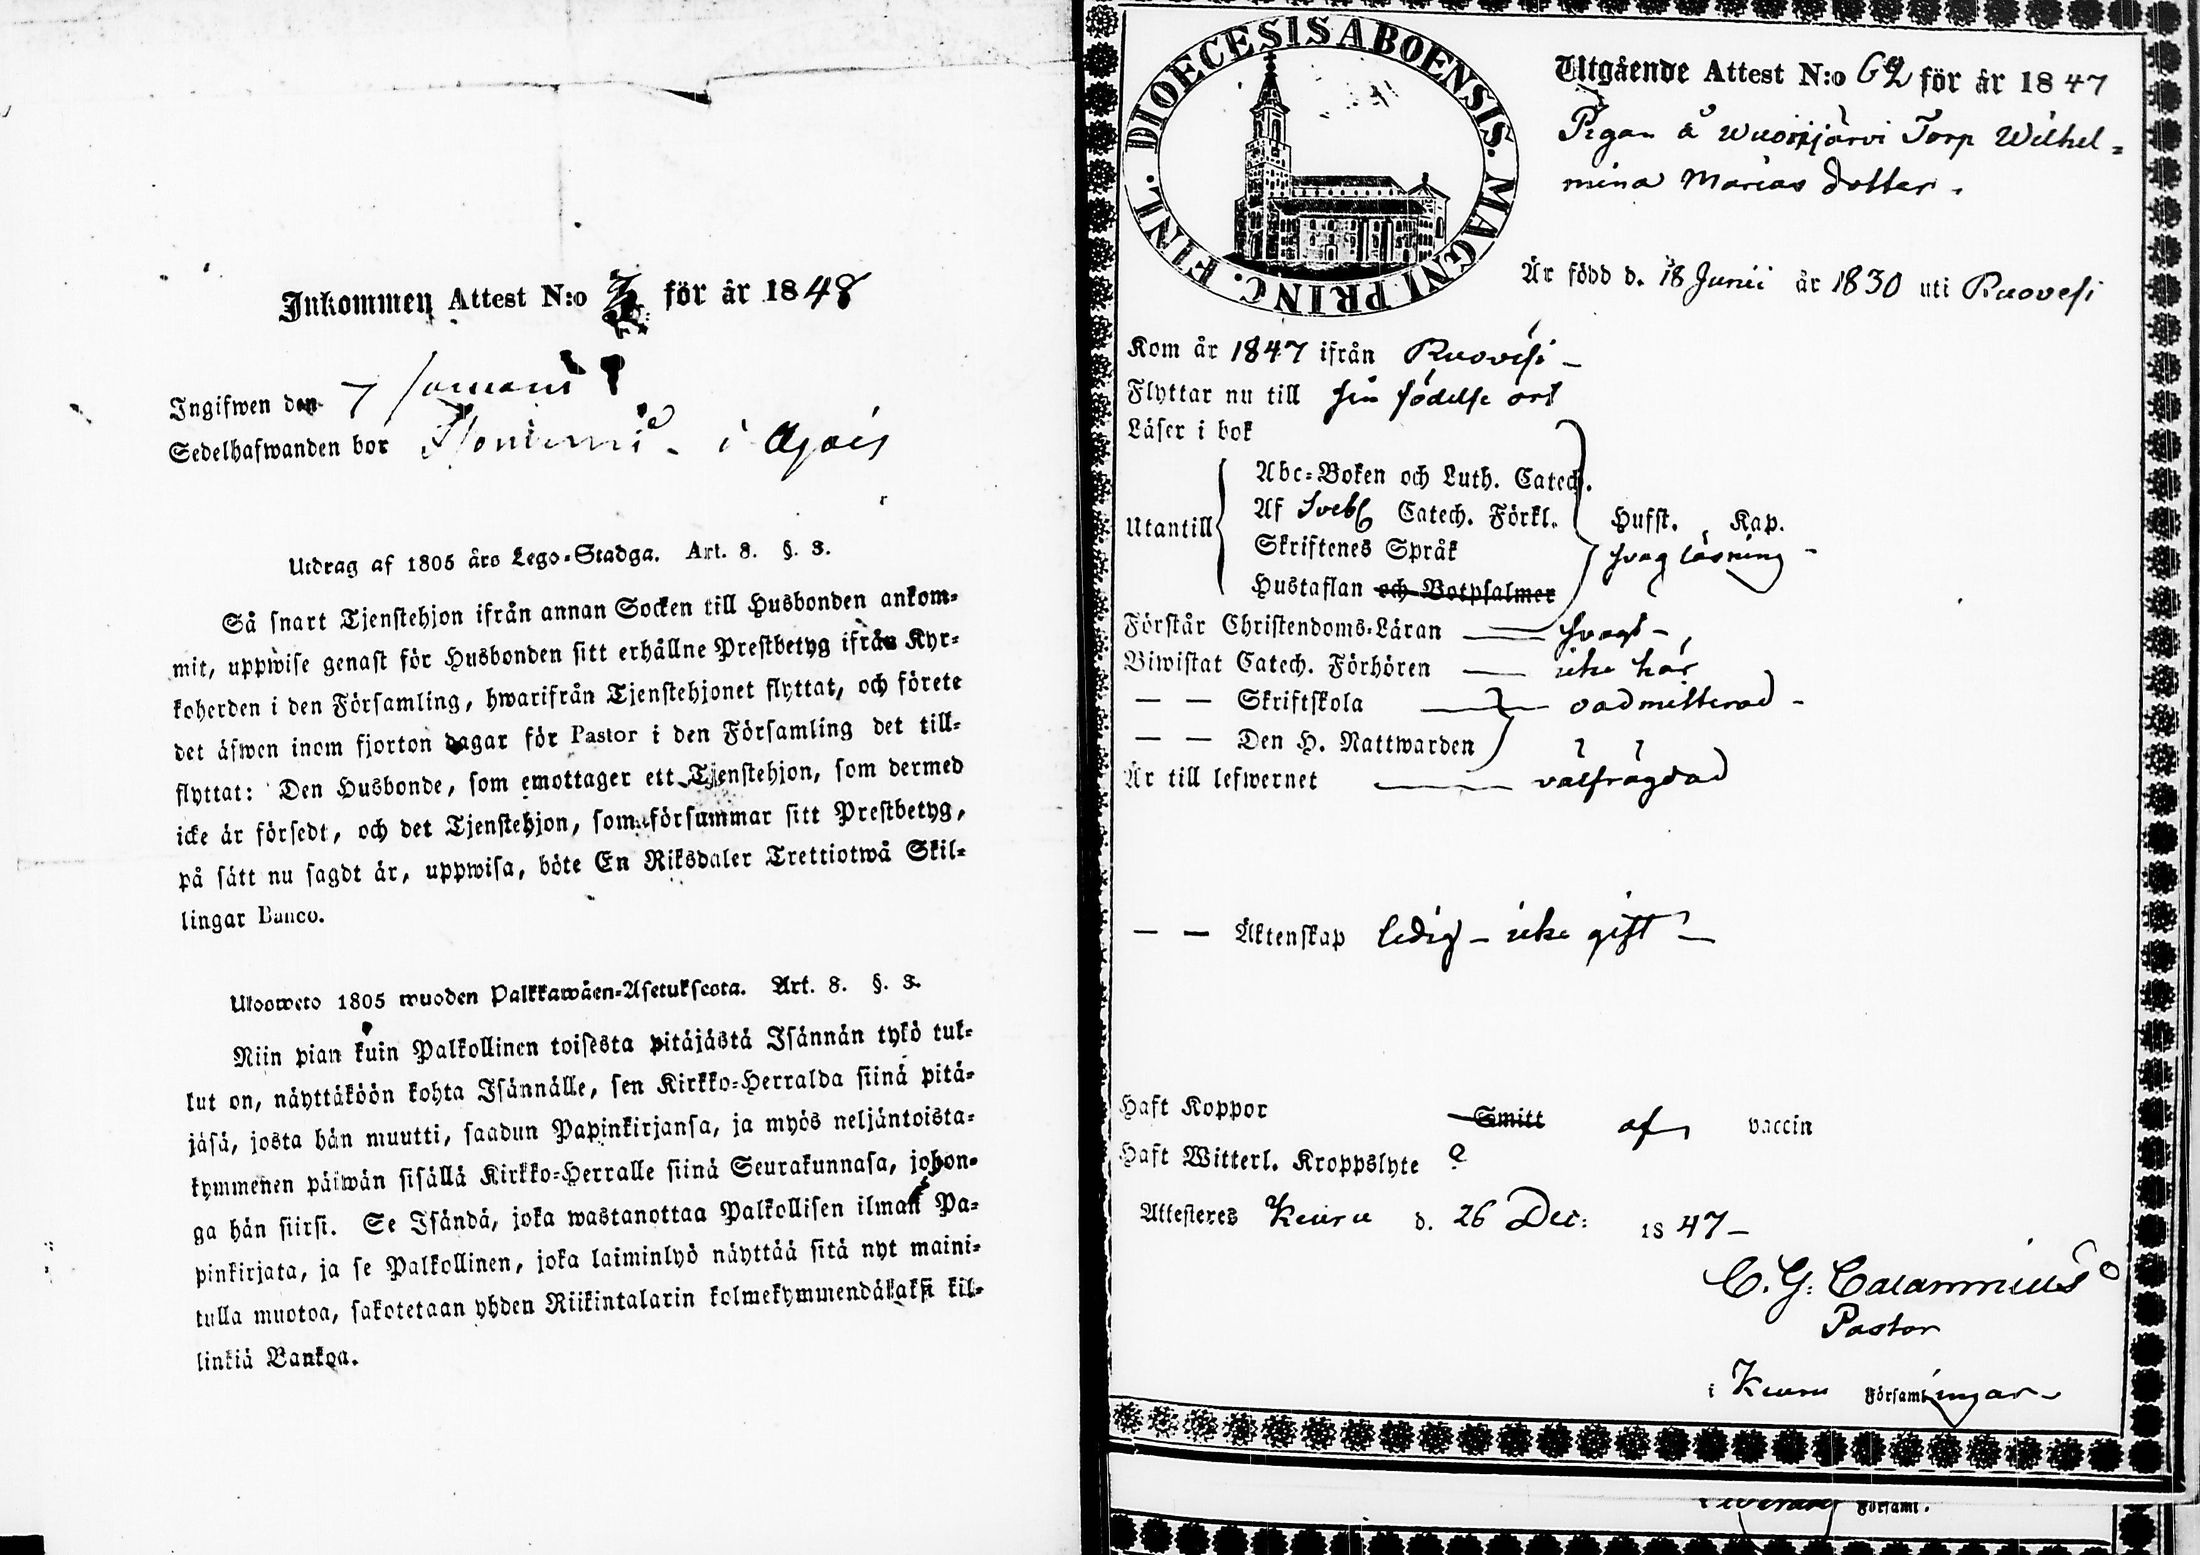 Inkommen Attest N:o för år 1848
Ingifwen den 7 Januarii
Sedelhafwanden bor i
Utdrag af 1805 års Lego-Stadga. Art. 8. §. 3.
Så snart Tjenstehjon ifrån annan Socken till Husbonden ankom-
mit, uppwise genast för Husbonden sitt erhållne Prestbetyg ifrån Kyr-
koherden i den Församling, hwarifrån Tjenstehjonet flyttat, och förete
det äfwen inom fjorton dagar för Pastor i den Församling det till-
flyttat: Den Husbonde, som emottager ett Tjenstehjon, som dermed
icke är försedt, och det Tjenstehjon, som försummar sitt Prestbetyg,
på sätt nu sagdt är, uppwisa, böte En Riksdaler Trettiotwå Skil-
lingar Banco.
Ulosweto 1805 wuoden Palkkawäen-Asetuksesta. Art. 8. §. 3.
Niin pian kuin Palkollinen toisesta pitäjästä Isännän tykö tul-
lut on, näyttäköön kohta Isännälle, sen Kirkko-Herralda siinä pitä-
jäsä, josta hän muutti, saadun Papinkirjansa, ja myös neljäntoista-
kymmenen päiwän sisällä Kirkko-Herralle siinä Seurakunnasa, johon-
ga hän siirsi. Se Isändä, joka wastanottaa Palkollisen ilman Pa-
pinkirjata, ja se Palkollinen, joka laiminlyö näyttää sitä nyt maini-
tulla muotoa, sakotetaan yhden Riikintalarin kolmekymmendäkaksi kil-
linkiä Bankoa.
DIOECESIS ABOENSIS. MAGNI PRINC. FINL.
Utgående Attest N:o 62 för år 1847
Pigan å Torp Wilhel=
mina Marias dotter.
Är född d. 18 Junii år 1830 uti Ruovesi
Kom år 1847 ifrån Ruovesi
Flyttar nu till sin födelse ort
Läser i bok
Abc-Boken och Luth. Catech.
Utantill Af Sveb Catech. Förkl. Hufst. Kap.
Skriftenes Språk svag läsning
Hustaflan och Botpsalmer
Förstår Christendoms-Läran svagt
Biwistat Catech. Förhören icke här
— — Skriftskola admitterad
— — Den H. Nattwarden
Är till lefwernet välfrägdad
— — Äktenskap ledig - icke gift
Haft Koppor Smitt af vaccin
Haft Witterl. Kroppslyte ?
Attesteres Keuru d. 26 Dec: 1847
C. G. Calamnius
Pastor
i Keuru Församlingar
Församl.